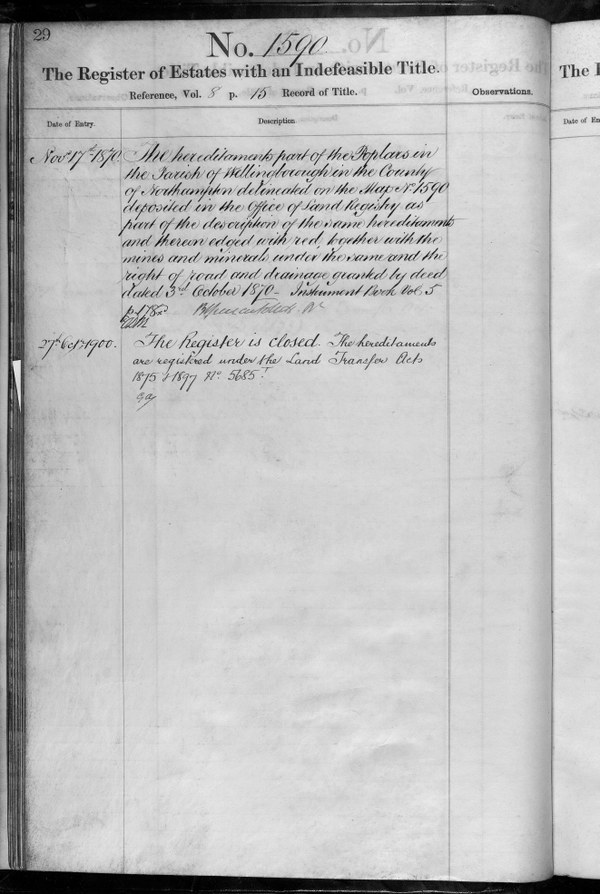 29
No. 1590
The Register of Estates with an Indefeasible Title.
Reference, Vol. 8 p. 15 Record of Title.
Observations.
Date of Entry.
Description.
Novr 17th 1870
The hereditaments part of the Poplars in
the Parish of Wellingborough in the County
of Northampton delineated on the Map No 1590
deposited in the Office of Land Registry as
part of the description of the same hereditaments
and thereon edged with red, together with the
mines and minerals under the same and the
right of road and drainage granted by deed
dated 3rd October 1870 - Instrument Book Vol. 5
p. 178
27th Oct 1900.
The Register is closed. The hereditaments
are registered under the Land Transfer Acts
1875 & 1897 No. 5685
The R
Date of En